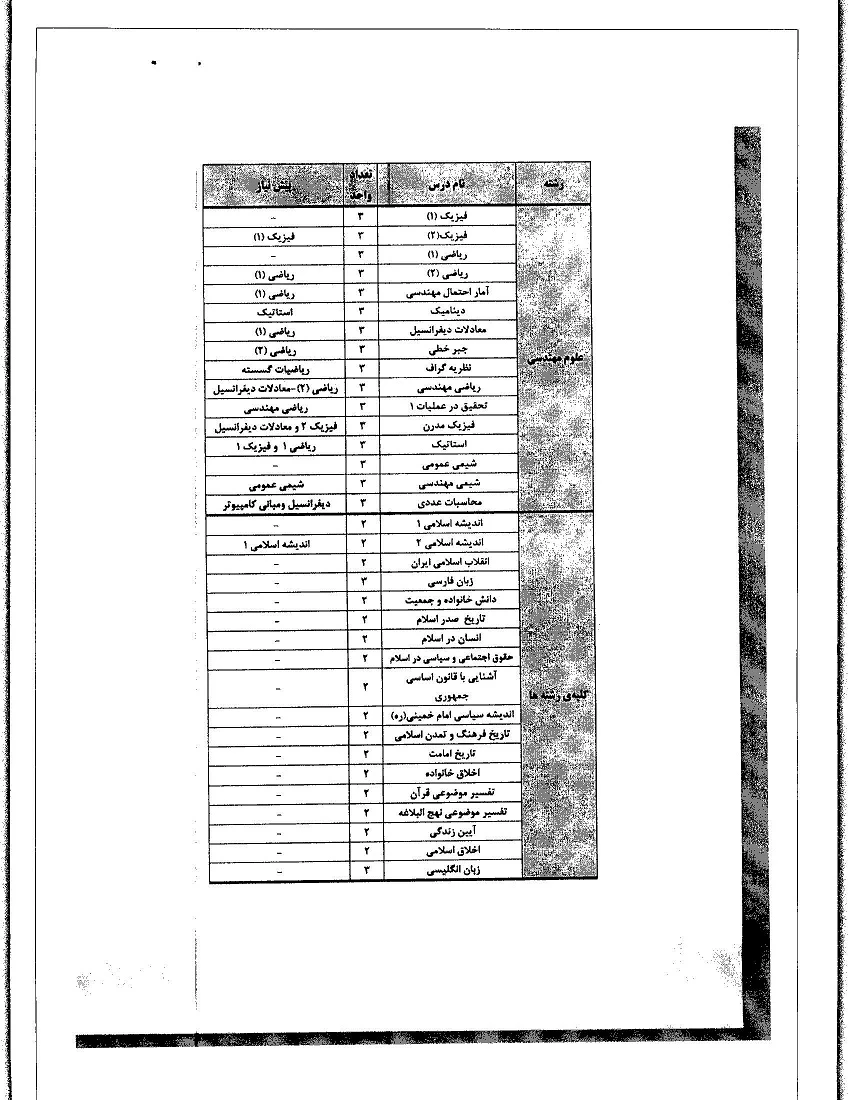 رشته نام درس تعداد واحد پیش نیاز
علوم مهندسی
فیزیک (۱) ۳ –
فیزیک(۲) ۳ فیزیک (۱)
ریاضی (۱) ۳ –
ریاضی (۲) ۳ ریاضی (۱)
آمار احتمال مهندسی ۳ ریاضی (۱)
دینامیک ۳ استاتیک
معادلات دیفرانسیل ۳ ریاضی (۱)
جبر خطی ۳ ریاضی (۲)
نظریه گراف ۳ ریاضیات گسسته
ریاضی مهندسی ۳ ریاضی (۲)–معادلات دیفرانسیل
تحقیق در عملیات ۱ ۳ ریاضی مهندسی
فیزیک مدرن ۳ فیزیک ۲ و معادلات دیفرانسیل
استاتیک ۳ ریاضی ۱ و فیزیک ۱
شیمی عمومی ۳ –
شیمی مهندسی ۳ شیمی عمومی
محاسبات عددی ۳ دیفرانسیل ومبانی کامپیوتر
کلیه‌ی رشته ها
اندیشه اسلامی ۱ ۲ –
اندیشه اسلامی ۲ ۲ اندیشه اسلامی ۱
انقلاب اسلامی ایران ۲ –
زبان فارسی ۳ –
دانش خانواده و جمعیت ۲ –
تاریخ صدر اسلام ۲ –
انسان در اسلام ۲ –
حقوق اجتماعی و سیاسی در اسلام ۲ –
آشنایی با قانون اساسی
جمهوری ۲ –
اندیشه سیاسی امام خمینی(ره) ۲ –
تاریخ فرهنگ و تمدن اسلامی ۲ –
تاریخ امامت ۲ –
اخلاق خانواده ۲ –
تفسیر موضوعی قرآن ۲ –
تفسیر موضوعی نهج البلاغه ۲ –
آیین زندگی ۲ –
اخلاق اسلامی ۲ –
زبان انگلیسی ۳ –